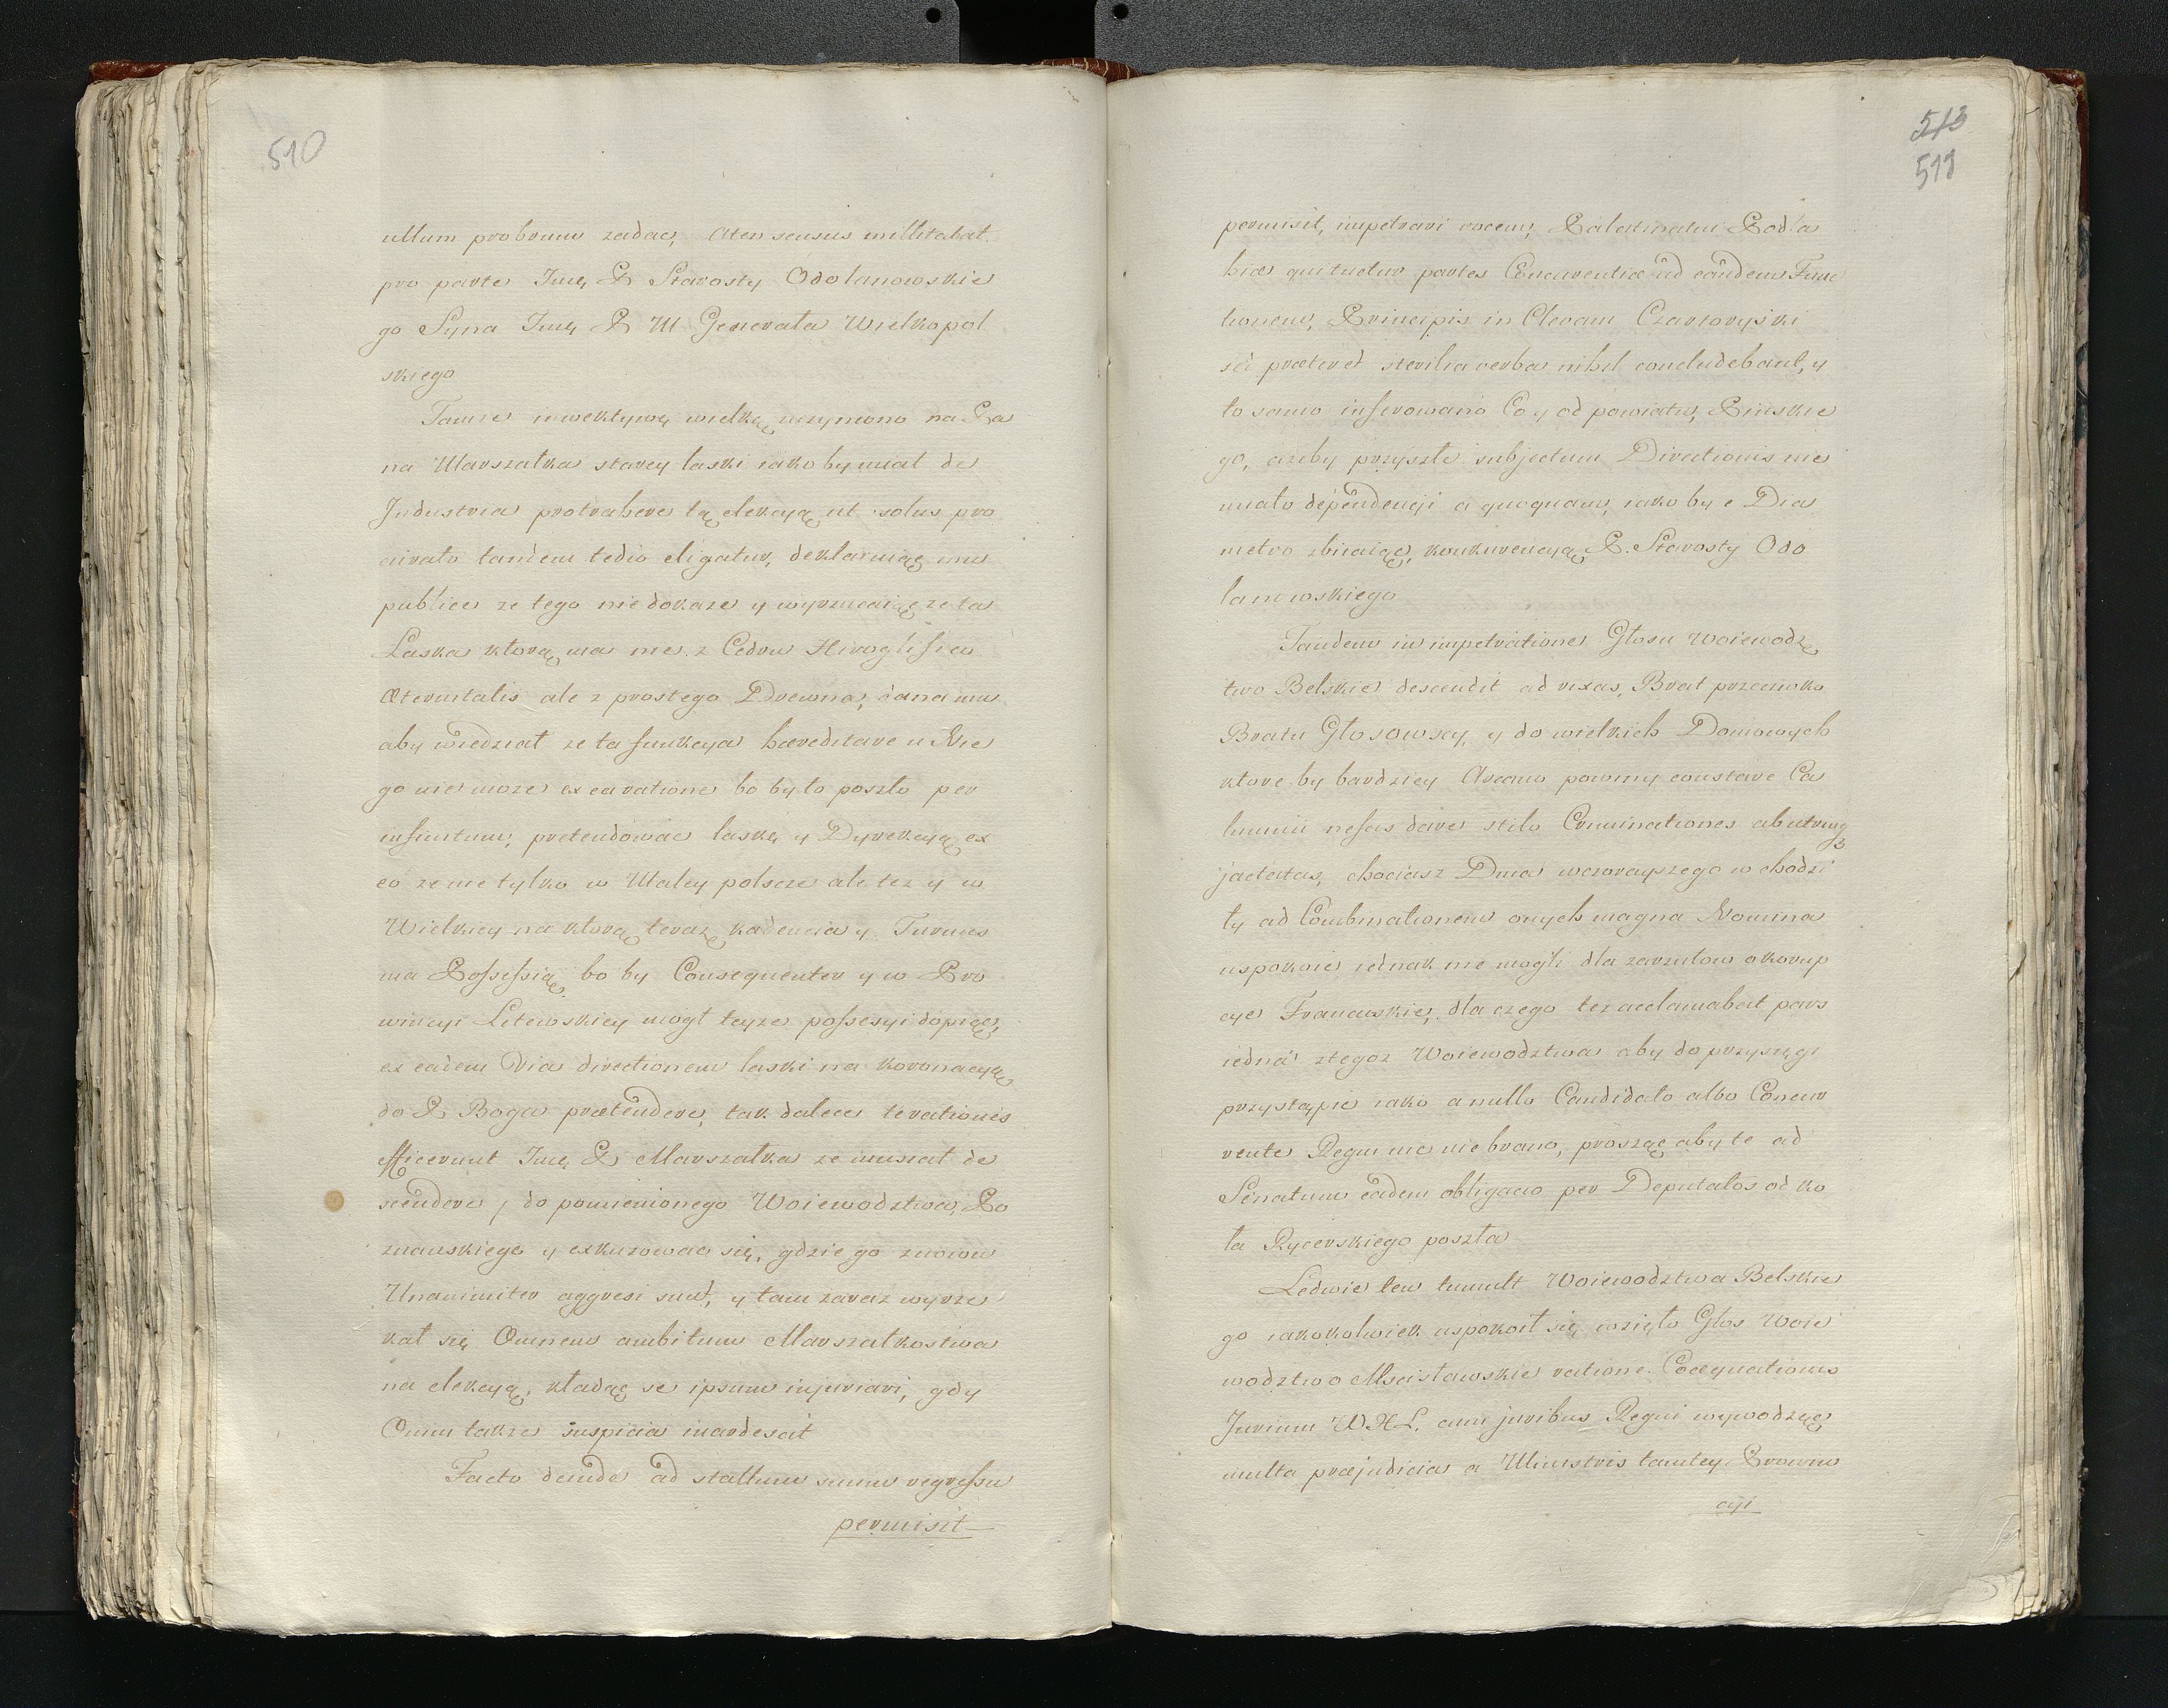 510
ullum probrum zadac, Aten sensus millitabat
pro parte Imę P Starosty Odolanowskie
go Syna Imę P M Generała Wielkopol
skiego
Tamże inwektywę wielką uczyniono na Pa
na Marszałka starey laski iakoby miał de
Industria protrahere tą elekcyą ut solus pro
tandem tedio eligatur, deklaruiąc mu
publice ze tego nie dokaze y wyrzucaiąc ze ta
Laska ktorą ma nie z Cedru
æternitalis ale z prostego Drewna, dana mu
aby wiedział ze ta funkcya hæreditare u Nie
go nie moze ex ea ratione bo by to poszło per
infinitum, pretendowac laskę y Dyrekcyą ex
eo ze nie tylko w Małey polscze ale tez y w
Wielkiey na ktorą teraz kadencia y Turnus
ma Possessią bo by Consequenter y w Pro
wincyi Litewskiey mogł teyze possesyi dopiąc,
ex eadem Via directionem laski na koronacyą
do P Boga prætendere, tak dalece
efficerunt Imę P Marszałka ze musiał de
scendere, do pomienionego Woiewodztwa, Po
znanskiego y exkuzowac się, gdzie go znowu
Unanimiter aggresi sunt, y tam zaraz wyrze
kał się Omnem ambitum Marszałkostwa
na elekcyą, kładąc se ipsum injuriari, gdy
Onim takze suspicia inardescit
Facto deinde ad stallum suum regressu
permisit
513
511
permisit, impetravi vocem, Palatinatui Podla
hiæ qui tuetur partes Concurentiæ ad eandem Func
tionem, Principis in Clevam Czartoryski
sed præter et sterilia verba nihil concludebant, y
to samo inferowano Co y od powiatu, Pinskie
go, azeby przyszłe subjectum Directionis nie
miało dependencji a quoquam, iakoby e Dia
metro zbiiaiąc, konkurencyą P. Starosty Odo
lanowskiego
Tandem in impetratione Głosu Woiewodz
two Bełskie descendit ad rixas, Brat przeciwko
Bratu Głosowsey, y do wielkich Domowych
ktore by bardziey Arcano powinny constare Ca
lumnii nefas dare stilo Criminationes ab utrinq3
jactatas, chociasz Dnia wczorayszego wchodzi
ły ad Combinationem onych magna Nomina
uspokoic iednak nie mogli dla zarzutow o korup
cye Francuskie, dla czego tez acclamabat pars
iedna ztegoz Woiewodztwa aby do przysięgi
przystąpic iako a nullo Candidato albo Concur
rente Regni nic nie brano, prosząc aby te ad
Senatum eadem obligacio per Deputatos od ko
ła Rycerskiego poszła
Ledwie ten tumult Woiewodztwa Bełskie
go iakokolwiek uspokoił się wzięło Głos Woie
wodztwo Mscisławskie ratione Coæquationis
Jurium W.X.L. cum juribus Regni wywodząc
multa præjudicia a Ministris tamtey Prowin
cyi